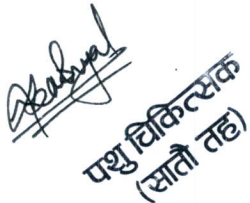 पशु चिकित्सक
(सातौ तह)